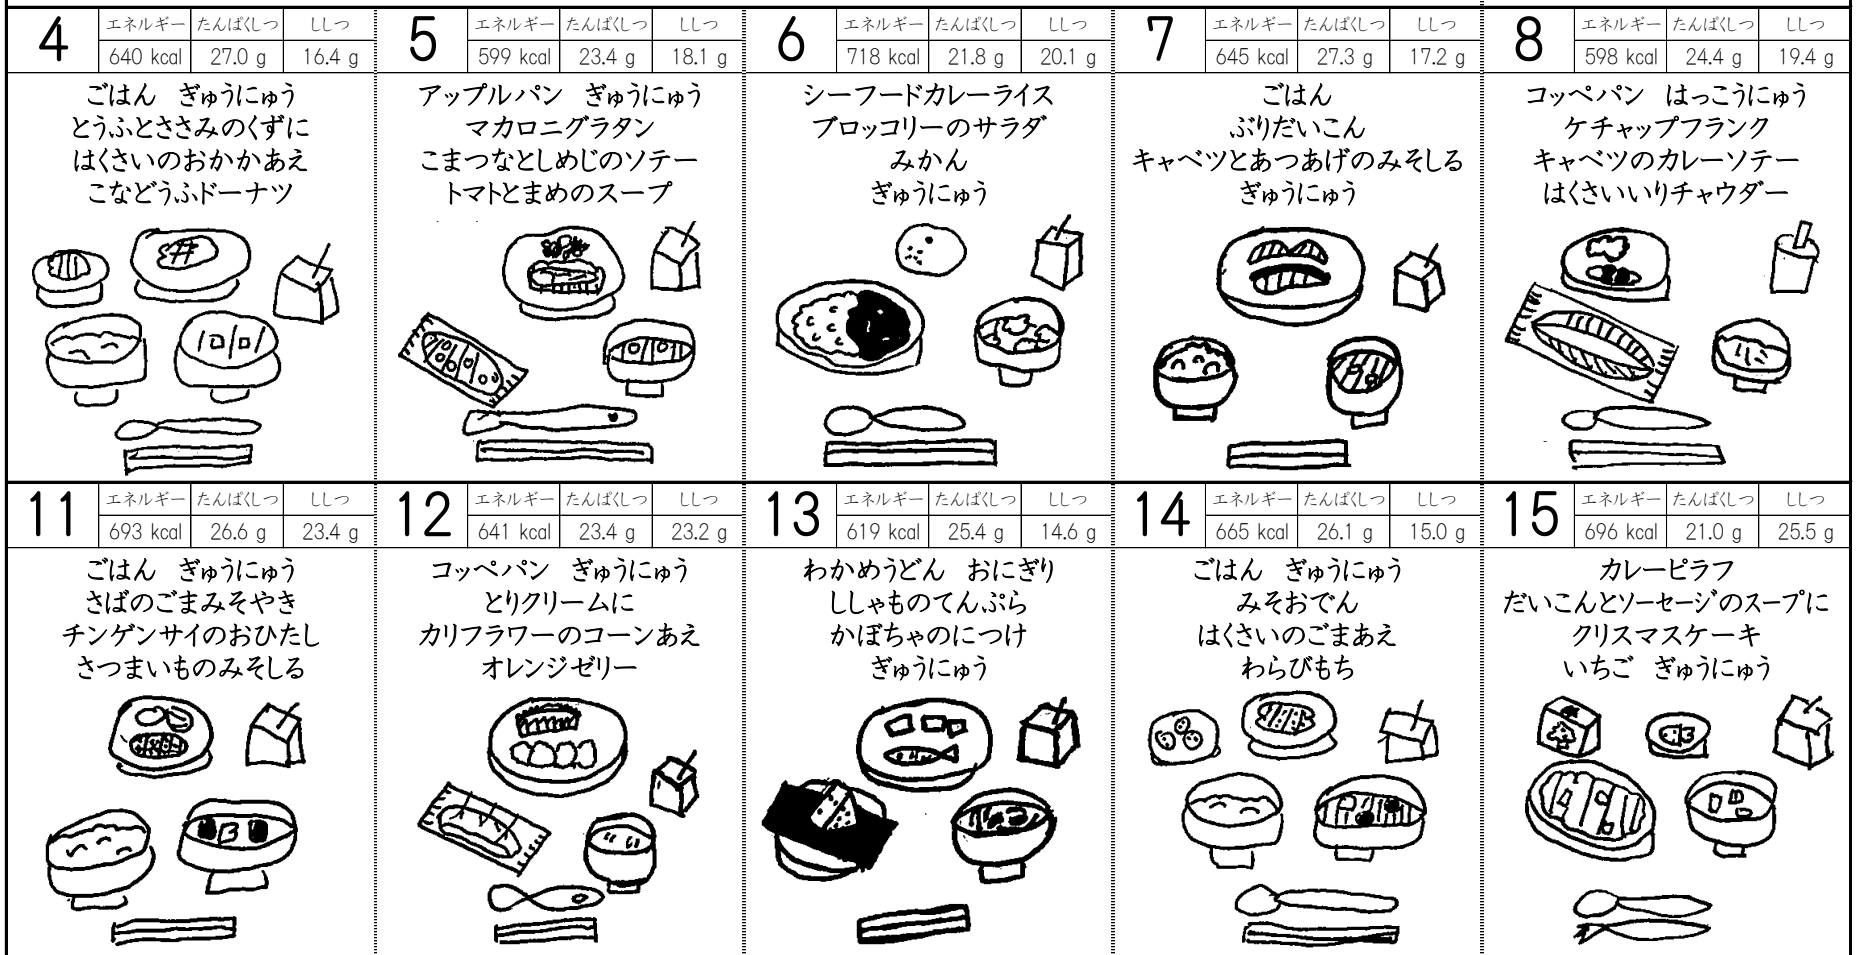 4 エネルギー たんぱくしつ ししつ
640 kcal 27.0 g 16.4 g
ごはん ぎゅうにゅう
とうふとささみのくずに
はくさいのおかかあえ
こなどうふドーナツ
5 エネルギー たんぱくしつ ししつ
599 kcal 23.4 g 18.1 g
アップルパン ぎゅうにゅう
マカロニグラタン
こまつなとしめじのソテー
トマトとまめのスープ
6 エネルギー たんぱくしつ ししつ
718 kcal 21.8 g 20.1 g
シーフードカレーライス
ブロッコリーのサラダ
みかん
ぎゅうにゅう
7 エネルギー たんぱくしつ ししつ
645 kcal 27.3 g 17.2 g
ごはん
ぶりだいこん
キャベツとあつあげのみそしる
ぎゅうにゅう
8 エネルギー たんぱくしつ ししつ
598 kcal 24.4 g 19.4 g
コッペパン はっこうにゅう
ケチャップフランク
キャベツのカレーソテー
はくさいいりチャウダー
11 エネルギー たんぱくしつ ししつ
693 kcal 26.6 g 23.4 g
ごはん ぎゅうにゅう
さばのごまみそやき
チンゲンサイのおひたし
さつまいものみそしる
12 エネルギー たんぱくしつ ししつ
641 kcal 23.4 g 23.2 g
コッペパン ぎゅうにゅう
とりクリームに
カリフラワーのコーンあえ
オレンジゼリー
13 エネルギー たんぱくしつ ししつ
619 kcal 25.4 g 14.6 g
わかめうどん おにぎり
ししゃものてんぷら
かぼちゃのにつけ
ぎゅうにゅう
14 エネルギー たんぱくしつ ししつ
665 kcal 26.1 g 15.0 g
ごはん ぎゅうにゅう
みそおでん
はくさいのごまあえ
わらびもち
15 エネルギー たんぱくしつ ししつ
696 kcal 21.0 g 25.5 g
カレーピラフ
だいこんとソーセージのスープに
クリスマスケーキ
いちご ぎゅうにゅう